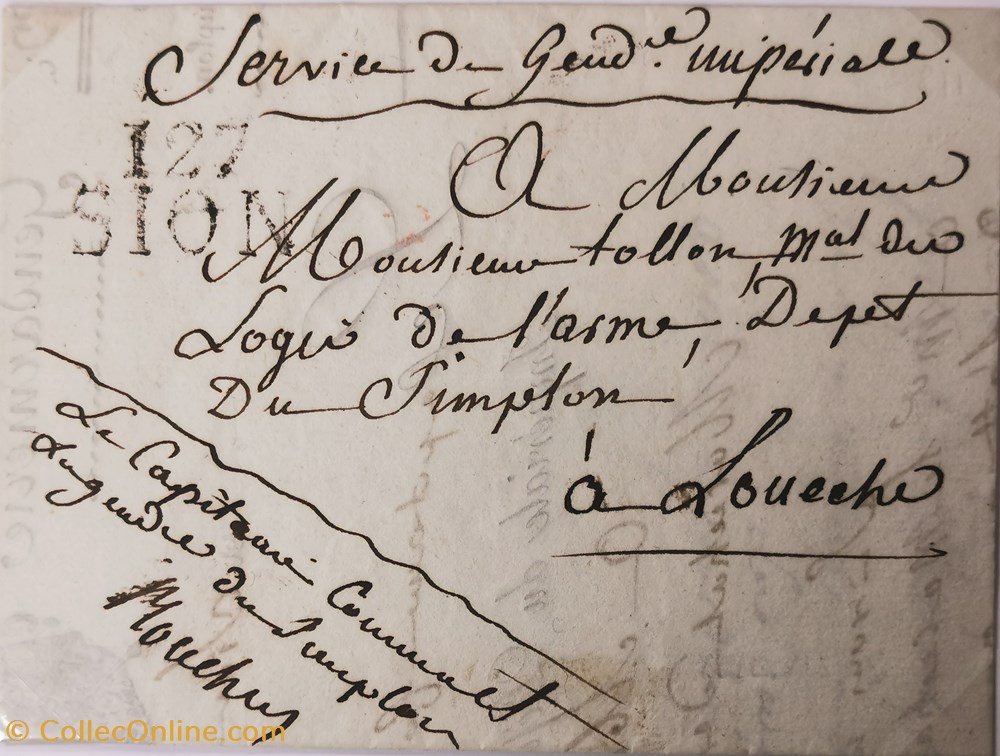 Service de Gend.ie impériale.
127
SION
A Monsieur
Monsieur tollon, Mal du
Logis de l'arme, Depot
Du Simplon,
à Loueche
Le Capitaine Commdt
La gendie du Simplon
© CollecOnline.com